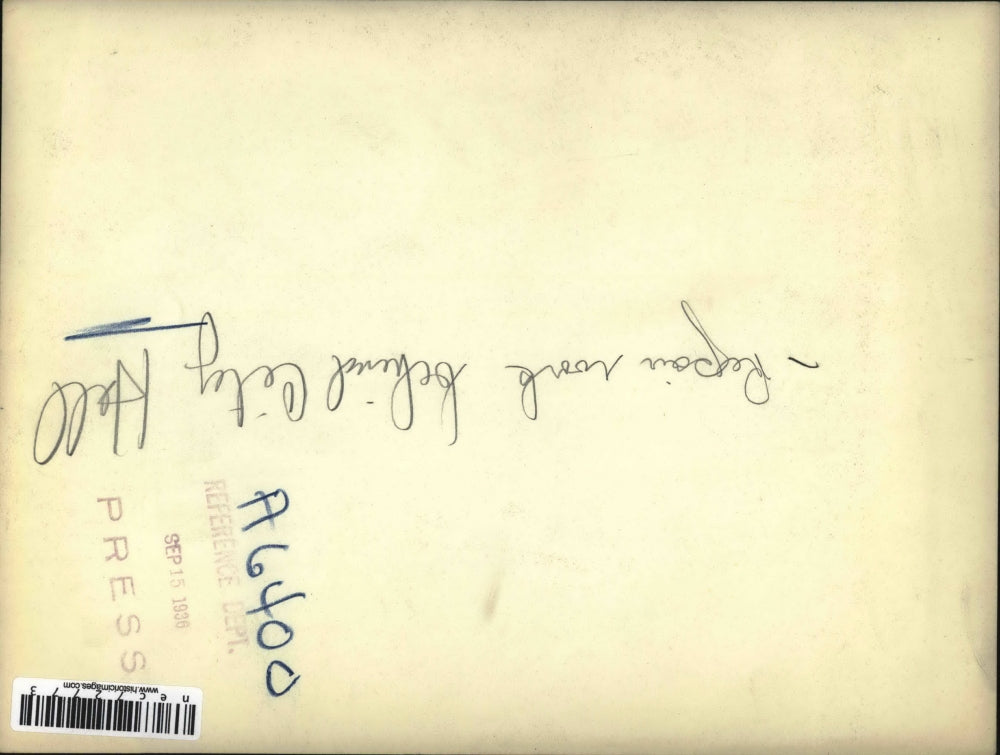 - Repair work behind City Hall
A6400
REFERENCE DEPT.
SEP 15 1936
PRESS
www.historicimages.com
nec72773